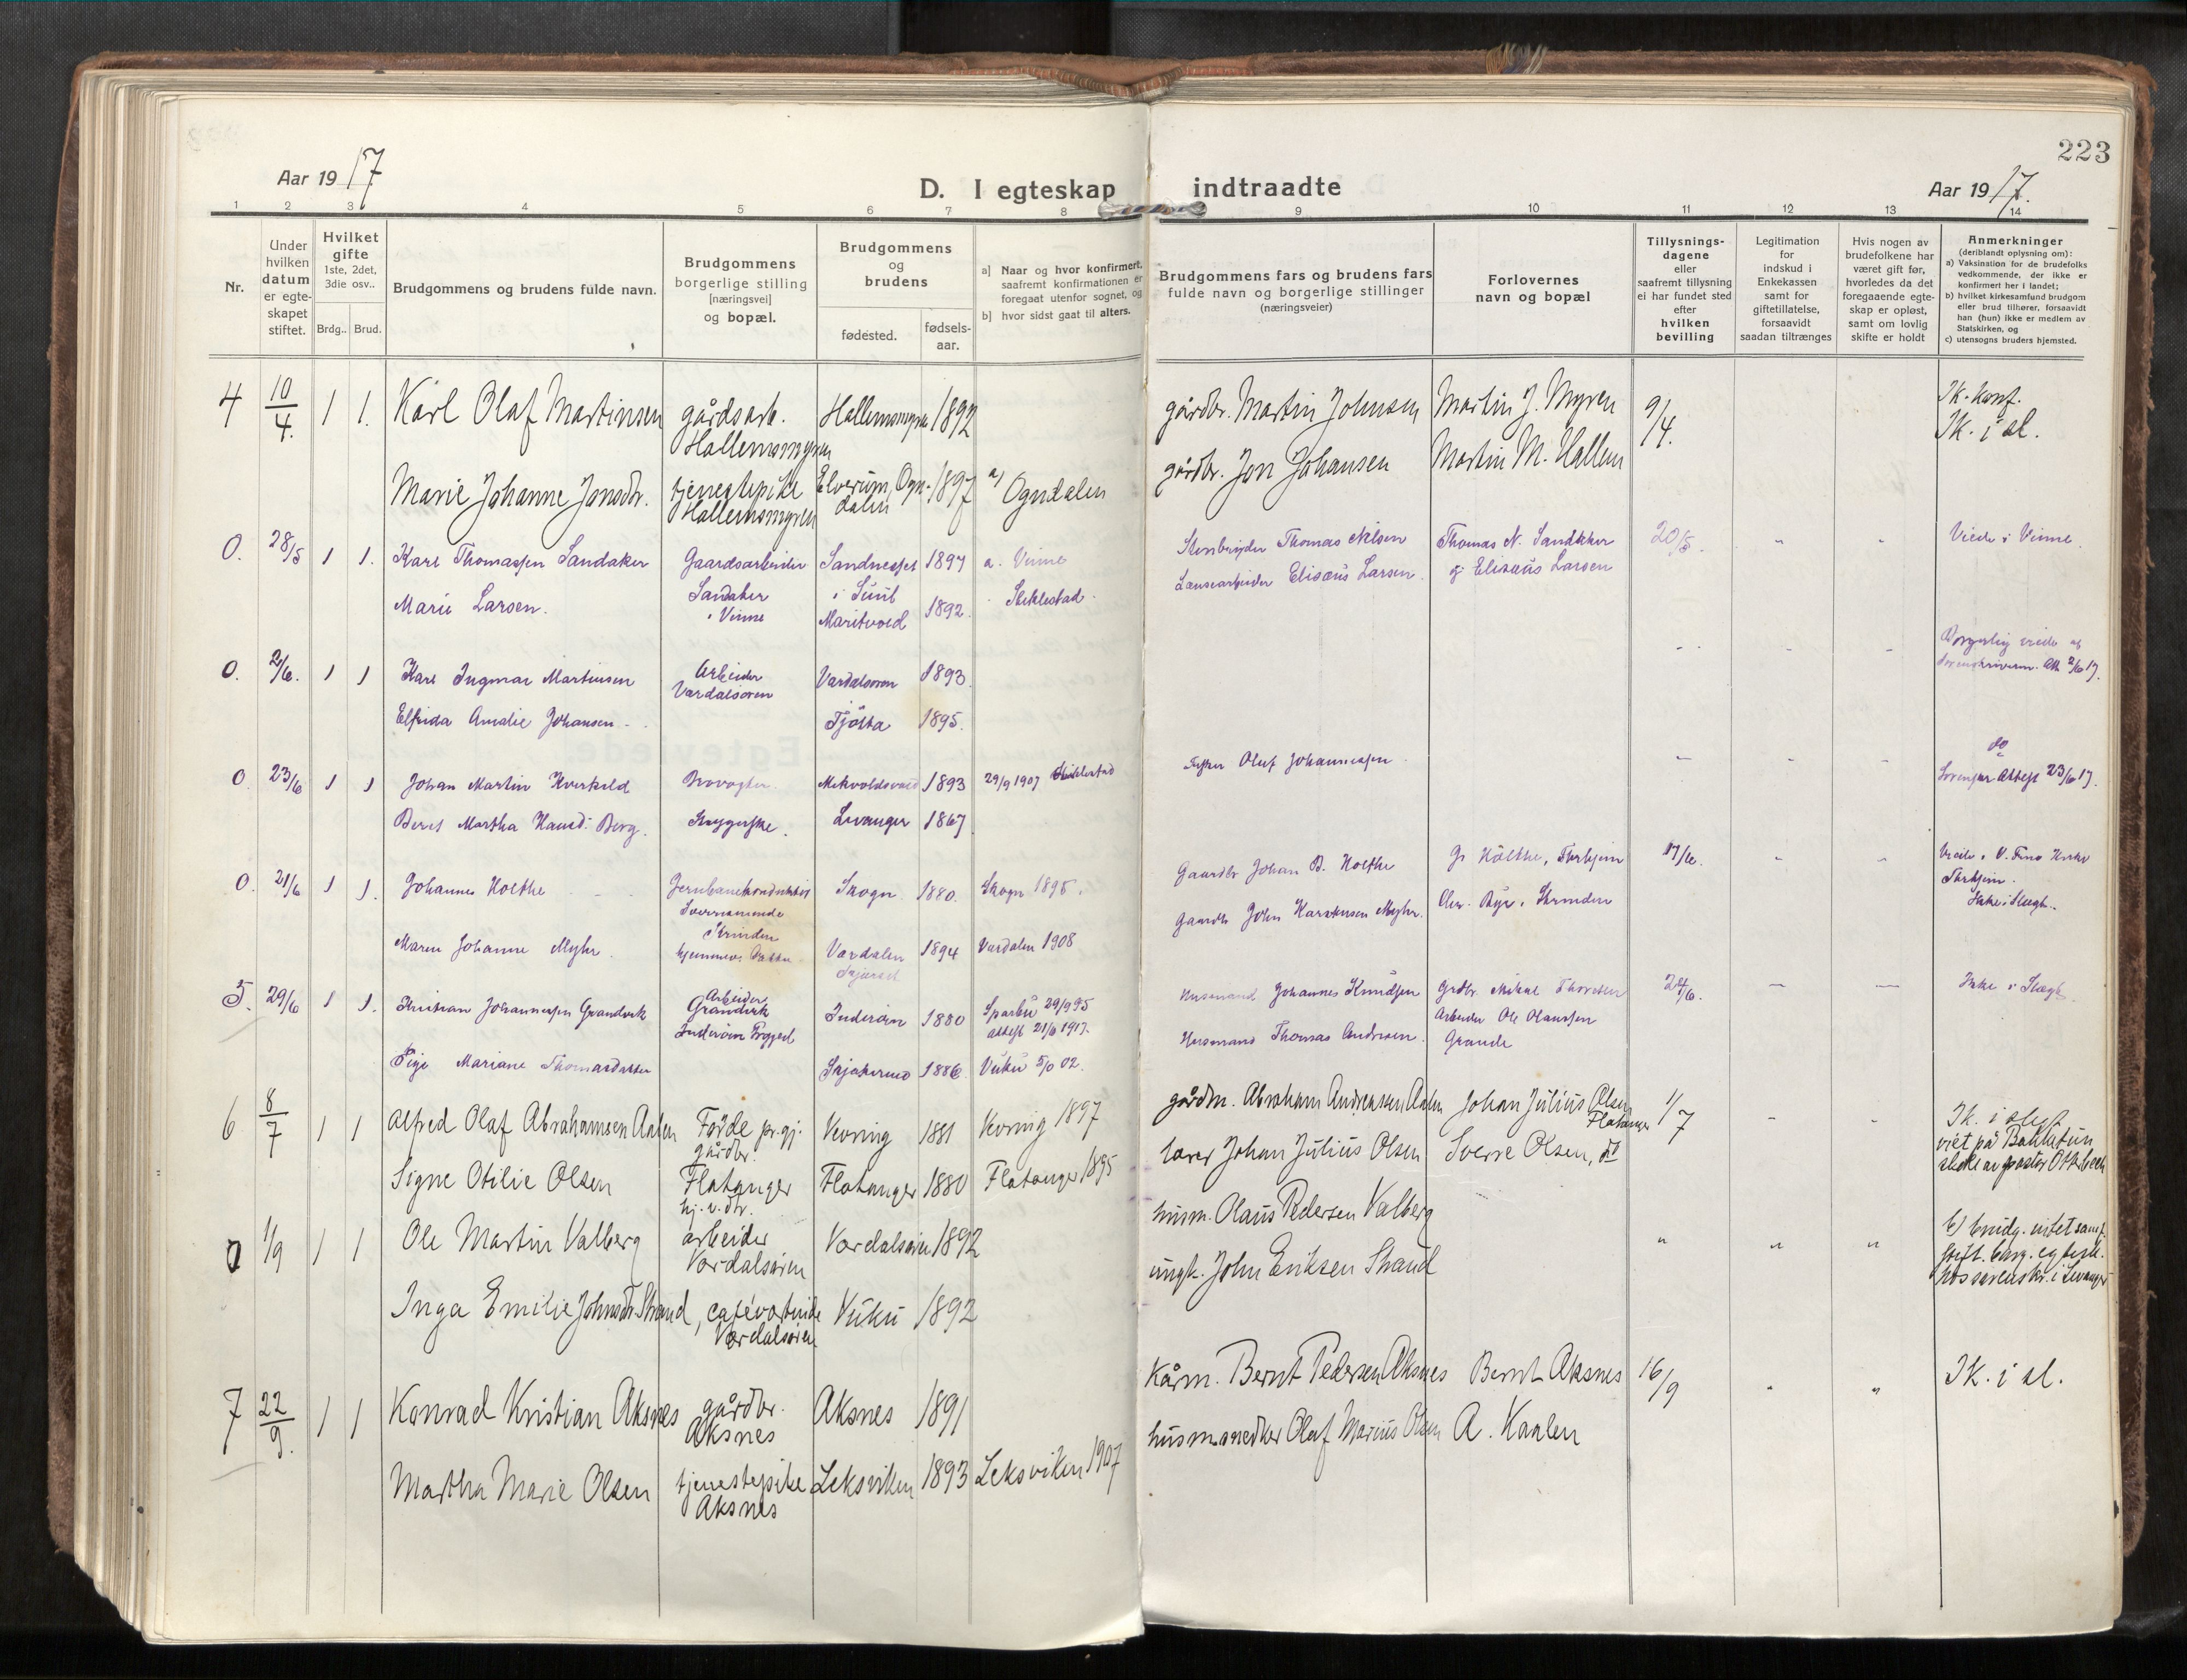 223
Aar 1917
D. I egteskap indtraadte
Aar 1917.
1 2 3 4 5 6 7 8 9 10 11 12 13 14
Nr.
Under hvilken datum er egte- skapet stiftet.
Hvilket gifte 1ste, 2det, 3die osv..
Brdg.. Brud.
Brudgommens og brudens fulde navn.
Brudgommens borgerlige stilling [næringsvei] og bopæl.
Brudgommens og brudens
fødested.
fødsels- aar.
a] Naar og hvor konfirmert, saafremt konfirmationen er foregaat utenfor sognet, og
b] hvor sidst gaat til alters.
Brudgommens fars og brudens fars fulde navn og borgerlige stillinger (næringsveier)
Forlovernes navn og bopæl
Tillysnings- dagene eller saafremt tillysning ei har fundet sted efter hvilken bevilling
Legitimation for indskud i Enkekassen samt for giftetillatelse, forsaavidt saadan tiltrænges
Hvis nogen av brudefolkene har været gift før, hvorledes da det foregaaende egte- skap er opløst, samt om lovlig skifte er holdt
Anmerkninger (deriblandt oplysning om):
a) Vaksination for de brudefolks vedkommende, der ikke er konfirmert her i landet;
b) hvilket kirkesamfund brudgom eller brud tilhører, forsaavidt han (hun) ikke er medlem av Statskirken, og
c) utensogns bruders hjemsted.
4 10/4. 1 1. Karl Olaf Martinsen gårdsarb. Hallemsmyren Hallemsmyren 1892 gårdbr. Martin Johnsen Martin J. Myren 9/4. Ik. konf. Ik. i sl.
Marie Johanne Jonsdtr. tjenestepike Hallemsmyren Elverum, Ogndalen 1897 a) Ogndalen gårdbr. Jon Johansen Martin M. Hallem
0. 28/5 1 1. Karl Thomassen Sandaker Gaardsarbeider Sandaker i Vinne 1897 a. Vinne Thomas Nilsen Thomas N. Sandaker 20/5. Viede i Vinne.
Marie Larsen. Maritvold 1892. Stiklestad. Elisæus Larsen. og Elisæus Larsen
0. 2/6. 1 1 Karl Ingmar Martinsen Arbeider Værdalsøren Værdalsøren 1893. Borgerlig viede af Sorenskriveren. Att. 2/6 17.
Elfrida Amalie Johansen Tjötta 1895.
0 23/6 1 1 Johan Martin Kverkild Brovogter Mikvoldsvald 1893 29/9 1907 Stiklestad Fisker Oluf Johannessen. do Attest 23/6 17.
Beret Martha Hansd. Berg. Levanger 1867
0. 21/6 1 1. Johannes Holthe Jernbanekonduktør Strinden Skogn 1880. Skogn 1895. Gaardbr Johan B. Holthe G. Holthe, Thrhjem 17/6. Viede i V. Frue Kirke Thrhjem. Ikke i Slegt.
Maren Johanne Myhr. Værdalen 1894 Værdalen 1908 Gaardb. John Myhr. Chr. Bye, Strinden
5. 29/6 1 1. Kristian Johannessen Grandverk Arbeider Inderøen 1880 Sparbu 29/9 95 attest 21/6 1917. Husmand Johannes Knudsen Grdbr. Mikal Thoresen 24/6. Ikke i Slegt.
Mariane Thomasdatter 1886 Vuku 5/0 02. Husmand Thomas Andersen. Arbeider Ole Olaussen Grande
6 8/7 1 1 Alfred Olaf Abrahamsen Aalen Förde pr. gj. gårdbr. Kvernig 1881 1897 gårdm. Abraham Andreassen Aalen Johan Julius Olsen Flatanger 1/7 Ik. i slegt viet på av pastor
Signe Otilie Olsen Flatanger hj. v. dtr. Flatanger 1880 Flatanger 1895 lærer Johan Julius Olsen Sverre Olsen, do
0 1/9 1 1 Ole Martin Valberg arbeider Værdalsøren Værdalsøren 1892 husm. Olaus Pedersen Valberg b) brudg. intet samf. stift. borg. egtesk. hos sorenskr. i Levanger
Inga Emilie Johnsdtr. Strand, cafévertinde Værdalsøren Vuku 1892 ungk. John Eriksen Strand
7 22/9. 1 1 Konrad Kristian Aksnes gårdbr. Aksnes Aksnes 1891 Kårm. Bernt Pedersen Aksnes Bernt Aksnes 16/9 Ik. i sl.
Martha Marie Olsen tjenestepike Aksnes Leksviken 1893 Leksviken 1907 husm. snedker Olaf Marius Olsen A. Kaalen